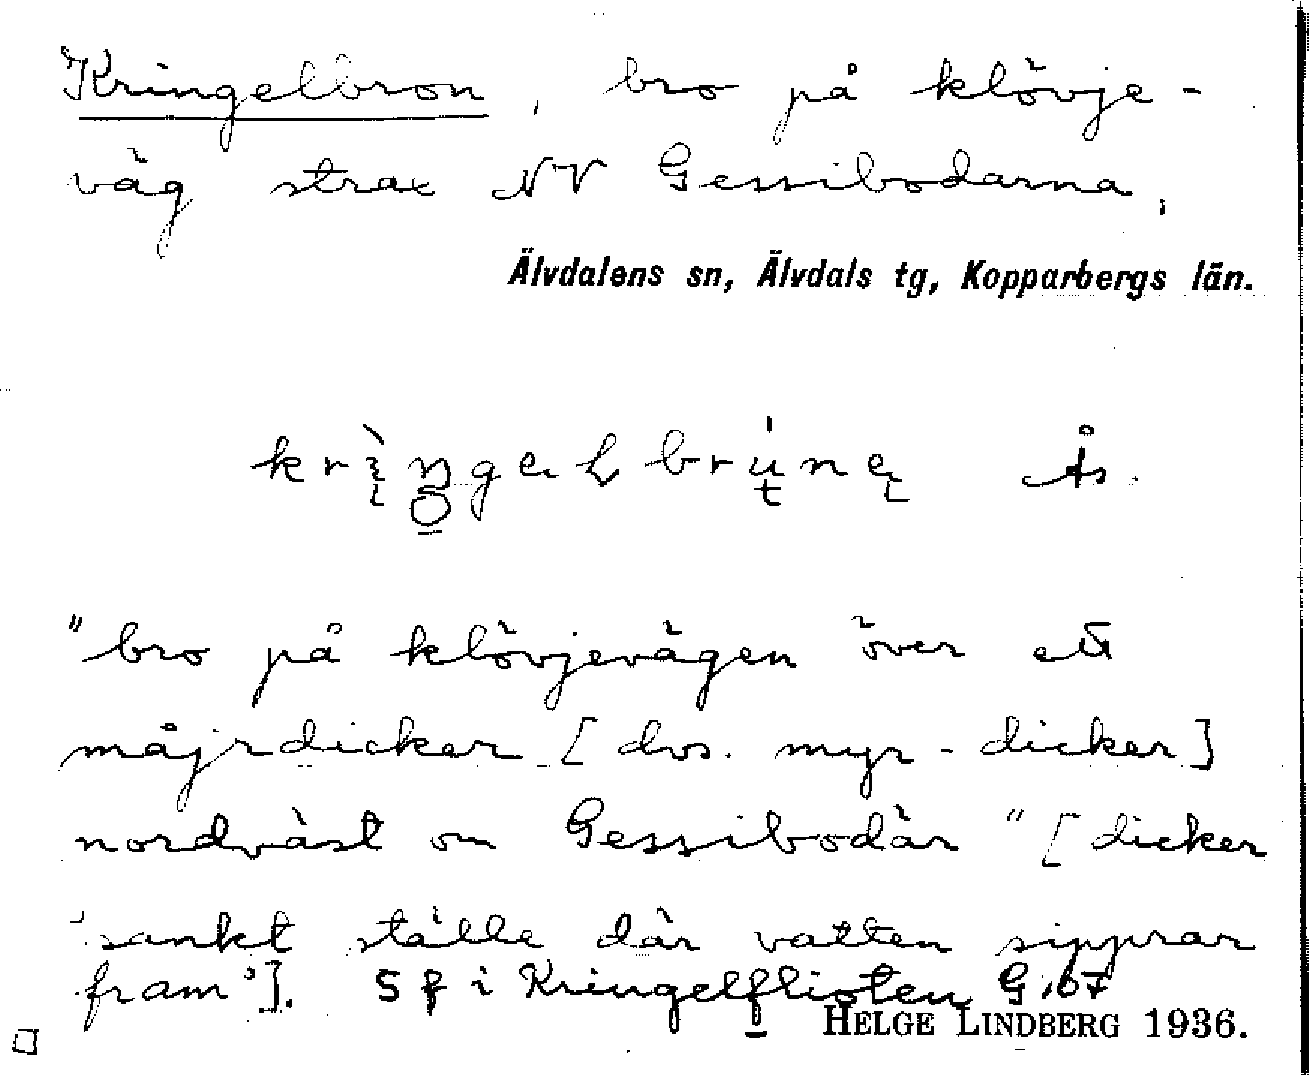 Kringelbron, bro på klövje-
väg strax NV Gessibodarna,
Älvdalens sn, Älvdals tg, Kopparbergs län.
Ås.
"bro på klövjevägen över ett
måjrdicker [dvs. myr-dicker]
nordväst om Gessibodär" [dicker
'sankt ställe där vatten sipprar
fram']. Sf i Kringelflisten G. 67
HELGE LINDBERG 1936.